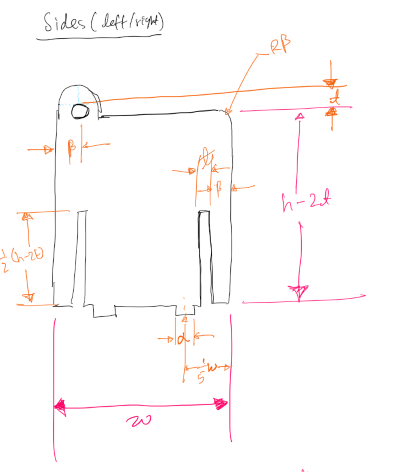 Sides (left/right)
Rβ
d
β
t
β
h-2t
1/2 (h-2t)
d
1/5 w
w